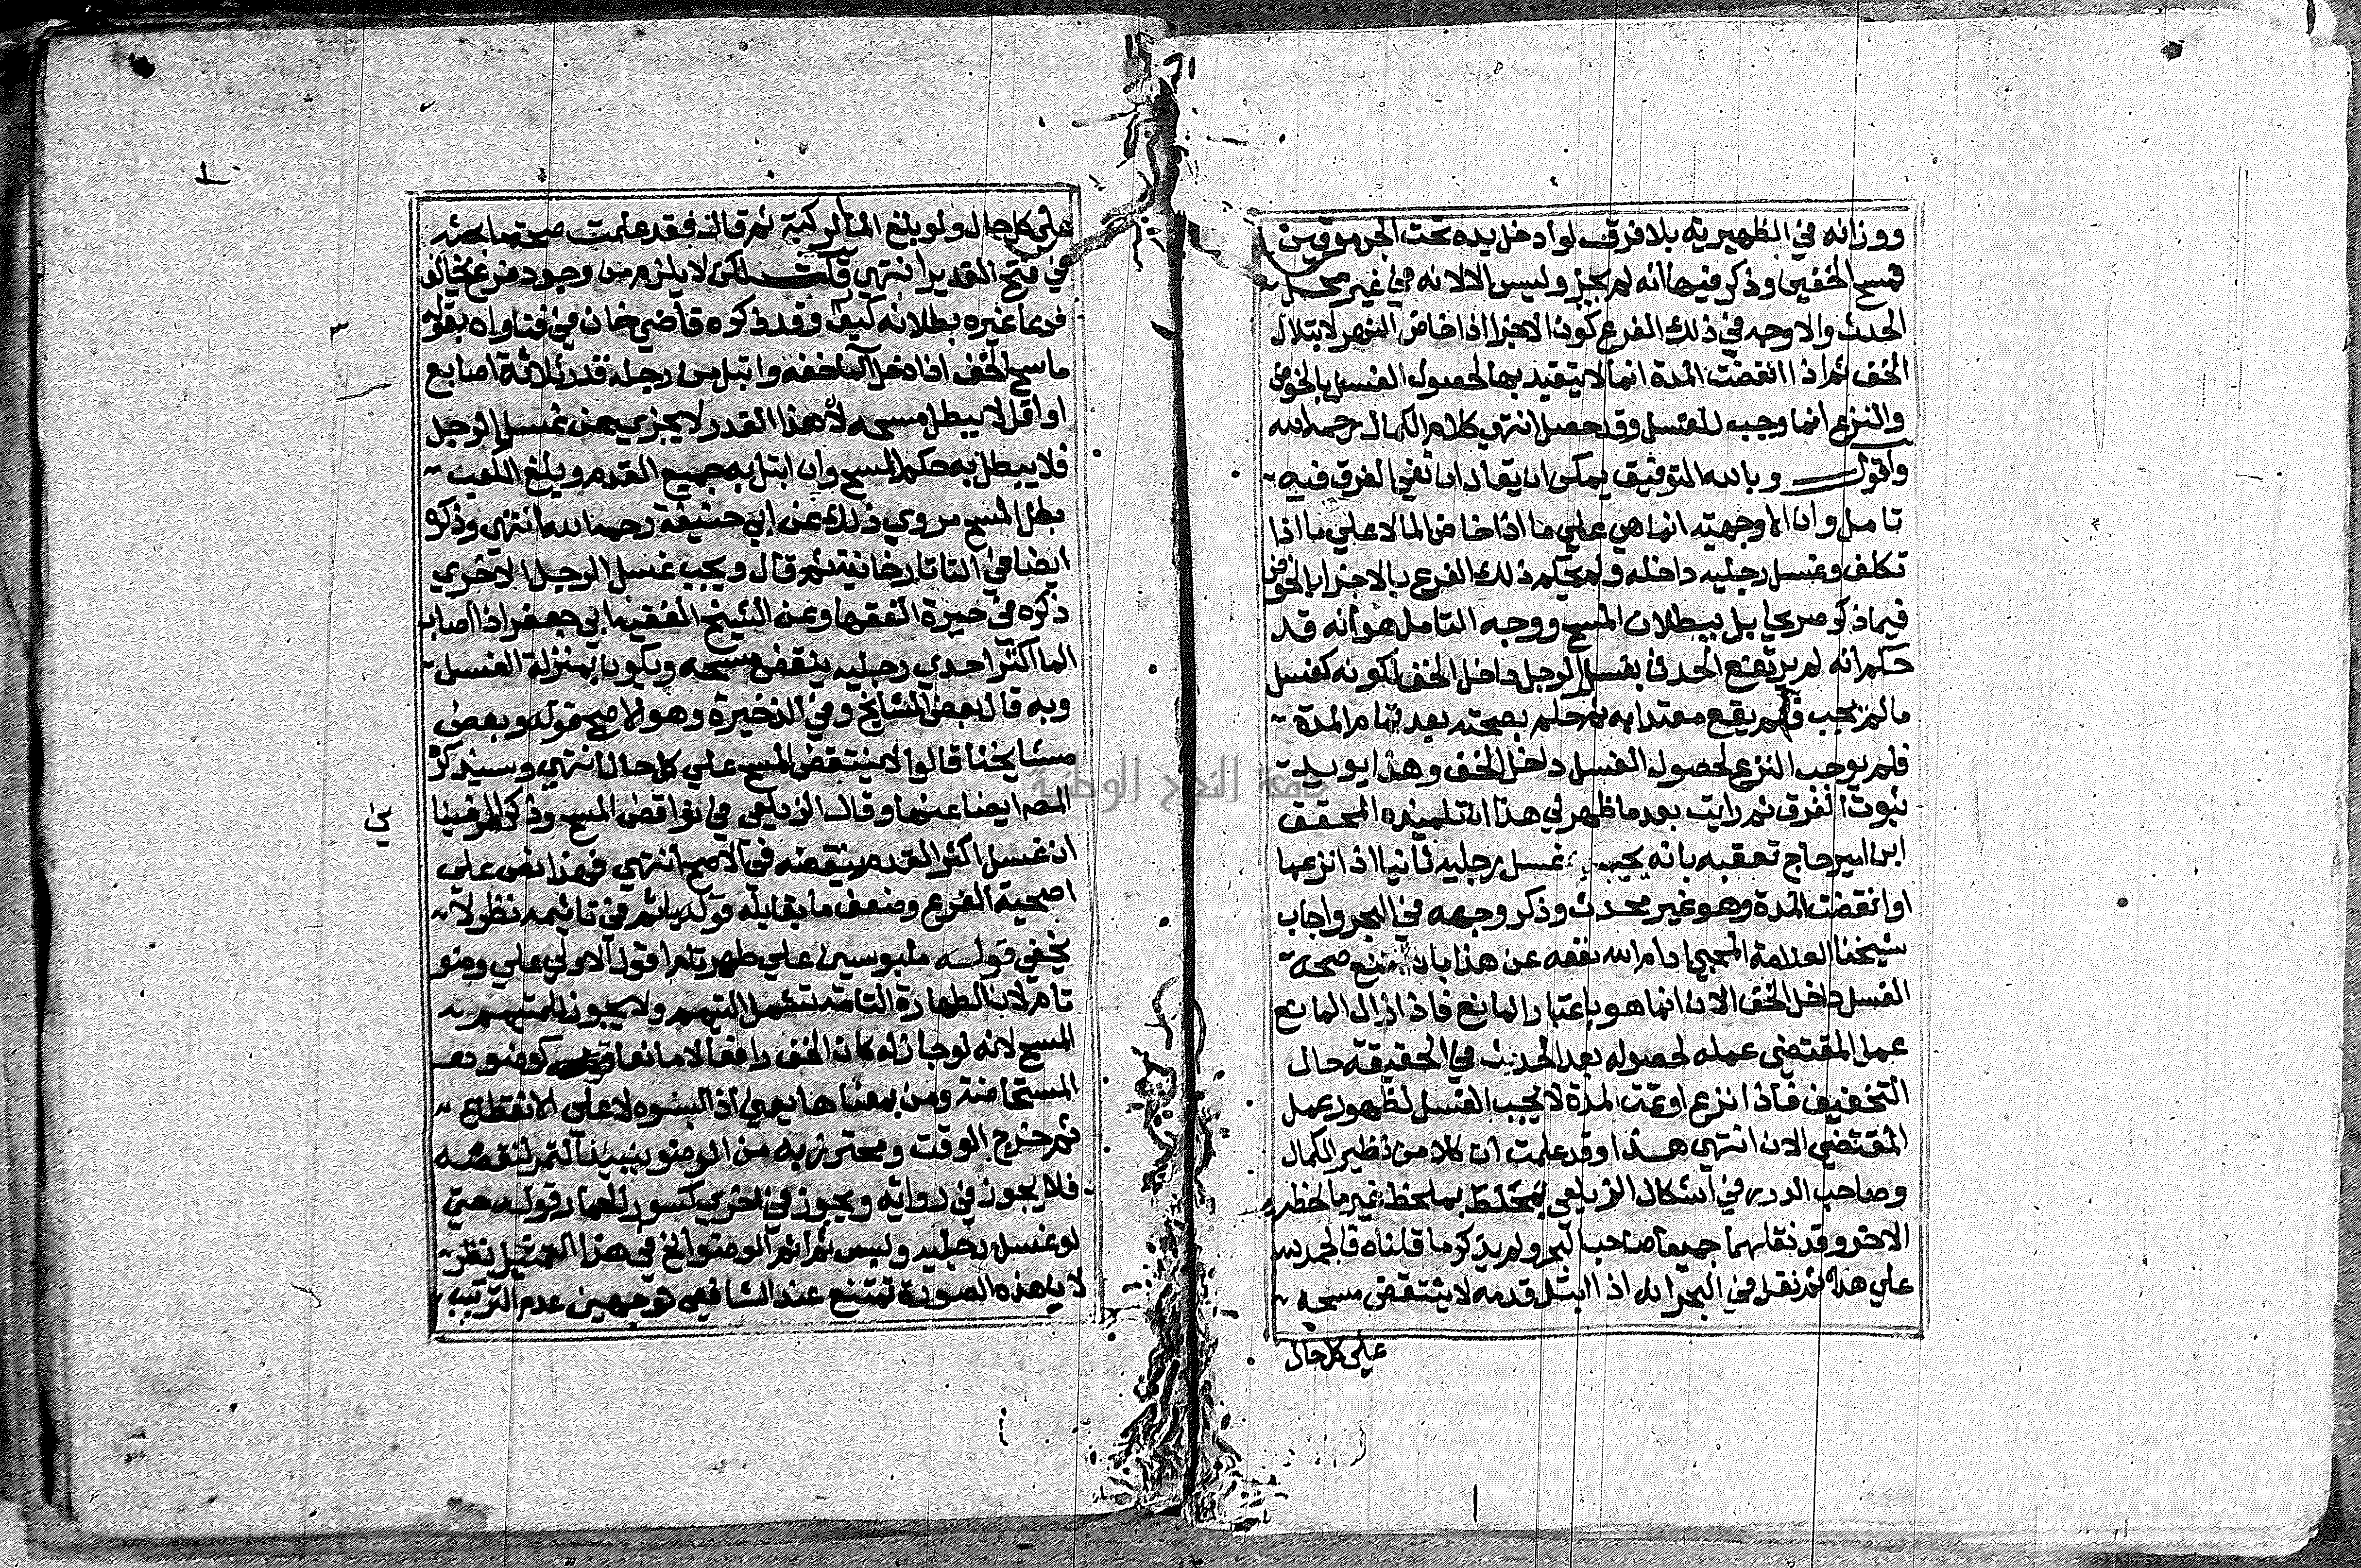 ووزانه في الظهيرية بلا فرق لو ادخل يده تحت الجرموقين
فمسح الخفين وذكر فيها انه لم يجز وليس الا لانه في غير محل
الحدث والاوجه في ذلك الفرع كون الاجزا اذا خاض النهر لابتلال
الخف ثم اذا انقضت المدة انما لا يتقيد بها لحصول الغسل بالخوض
والنزع انما وجب للغسل وقد حصل انتهى كلام الكمال رحمه الله
واقول وبالله التوفيق يمكن ان يقال ان نفي الفرق فيه
تامل وان الاوجهية انما هي علي ما اذا خاض الما لا علي ما اذا
تكلف وغسل رجليه داخله ولم يحكم ذلك الفرع بالاجزا بالخوض
فيما ذكر صريحا بل ببطلان المسح ووجه التامل هو انه قد
حكم انه لم يرتفع الحدث بغسل الرجل داخل الخف لكونه كغسل
ما لم يجب فلم يقع معتدا به ثم حكم بصحته بعد تمام المدة
فلم يوجب النزع لحصول الغسل داخل الخف وهذا يويد
ثبوت الفرق ثم رايت بعد ما ظهر لي هذا ان تلميذه المحقق
ابن امير حاج تعقبه بانه يجب غسل رجليه ثانيا اذا نزعهما
او انقضت المدة وهو غير محدث وذكر وجهه في البحر واجاب
شيخنا العلامة المحبي ادام الله نفعه عن هذا بان منع صحة
الغسل داخل الخف الان انما هو باعتبار المانع فاذا زال المانع
عمل المقتضي عمله لحصوله بعد الحدث في الحقيقة حال
التخفيف فاذا نزع او تمت المدة لا يجب الغسل لظهور عمل
المقتضي الان انتهي هذا وقد علمت ان كلا من نظير الكمال
وصاحب الدرر في اشكال الزيلعي بملحظ غير ما لحظه
الاخر وقد نقلهما جميعا صاحب البحر ولم يذكر ما قلناه فالحمد لله
علي هذا ثم نقل في البحر انه اذا ابتل قدمه لا ينتقض مسحه
علي كل حال
علي كل حال ولو بلغ الما الركبة ثم قال فقد علمت صحة ما بحثه
في فتح القدير انتهي قلت لكن لا يلزم من وجود فرع يخالف
فرعا غيره بطلانه كيف وقد ذكره قاضي خان في فتاواه بقوله
ماسح الخف اذا دخل الما خفه وابتل من رجله قدر ثلاثة اصابع
او اقل لا يبطل مسحه لان هذا القدر لا يجزي عن غسل الرجل
فلا يبطل به حكم المسح وان ابتل به جميع القدم وبلغ الكعب
بطل المسح مروي ذلك عن ابي حنيفة رحمه الله انتهي وذكره
ايضا في التاتارخانية ثم قال ويجب غسل الرجل الاخري
ذكره في حيرة الفقها وعن الشيخ الفقيه ابي جعفر اذا اصاب
الما اكثر احدي رجليه ينقض مسحه ويكون بمنزلة الغسل
وبه قال بعض المشايخ وفي الذخيرة وهو الاصح قوله وبعض
مشايخنا قالوا لا ينتقض المسح علي كل حال انتهي وسيذكر
المصه ايضا عنهما وقال الزيلعي في نواقض المسح وذكر المرغينا
ني
ان غسل اكثر القدم ينقضه في الاصح انتهي فهذا نص علي
اصحية الفرع وضعف ما يقابله قوله ياثم في تاثيمه نظر لا
يخفي قوله ملبوسين علي طهر تام اقول الاولي علي وضو
تام لان الطهارة التامة تشمل التيمم ولا يجوز للمتيمم
المسح لانه لو جاز له كان الخف رافعا لا مانعا كوضو
المستحاضة ومن بمعناها يعني اذا لبسوه لا علي الانقطاع
ثم خرج الوقت ومحترز به من الوضو بنبيذ التمر لنقضه
فلا يجوز في رواية ويجوز في اخري كسور الحمار قوله حتي
لو غسل رجليه ولبس ثم اتم الوضو الخ في هذا التمثيل نظر
لان هذه الصورة تمتنع عند الشافعي لوجهين عدم الترتيب
جامعة النجاح الوطنية